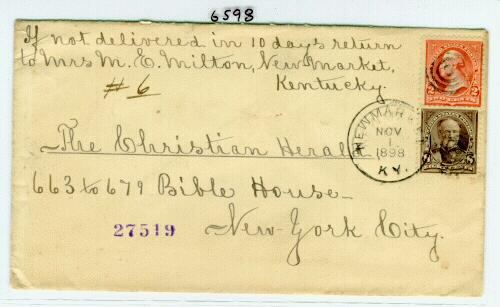 6598
If not delivered in 10 days return
to Mrs M. E. Milton, New Market,
Kentucky.
#6
NEWMARKET
NOV
1
1898
KY.
The Christian Herald
663 to 679 Bible House
New York City.
27519
2 2